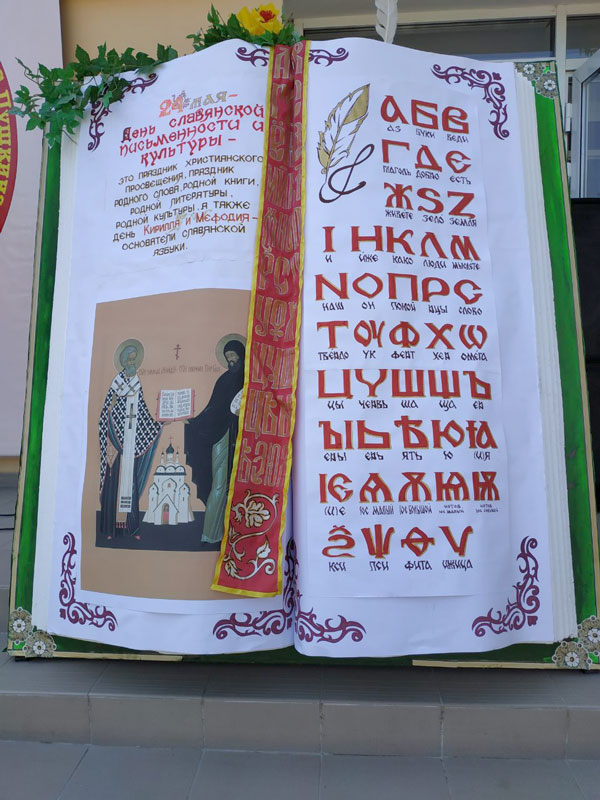 24 мая-
День славянской
письменности и
культуры-
это праздник християнского
просвещения, праздник
родного слова, родной книги,
родной литературы,
родной культуры, а также
день Кирилла и Мефодия-
основатели славянской
азбуки.
А Б В
аз буки веди
Г Д Е
глаголь добро есть
Ж Ѕ Z
живете зело земля
І Н К Л М
и иже како люди мыслете
N О П Р С
наш он покой рцы слово
Т ОУ Ф Х Ѡ
твердо ук ферт хер омега
Ц Ч Ш Щ Ъ
цы червь ша ща ер
Ы Ь Ѣ Ю Ꙗ
еры ерь ять ю (и)я
Ѥ Ѧ Ѫ Ѩ Ѭ
(и)е юс малый юс большой
Ѯ Ѱ Ѳ Ѵ
кси пси фита ижица